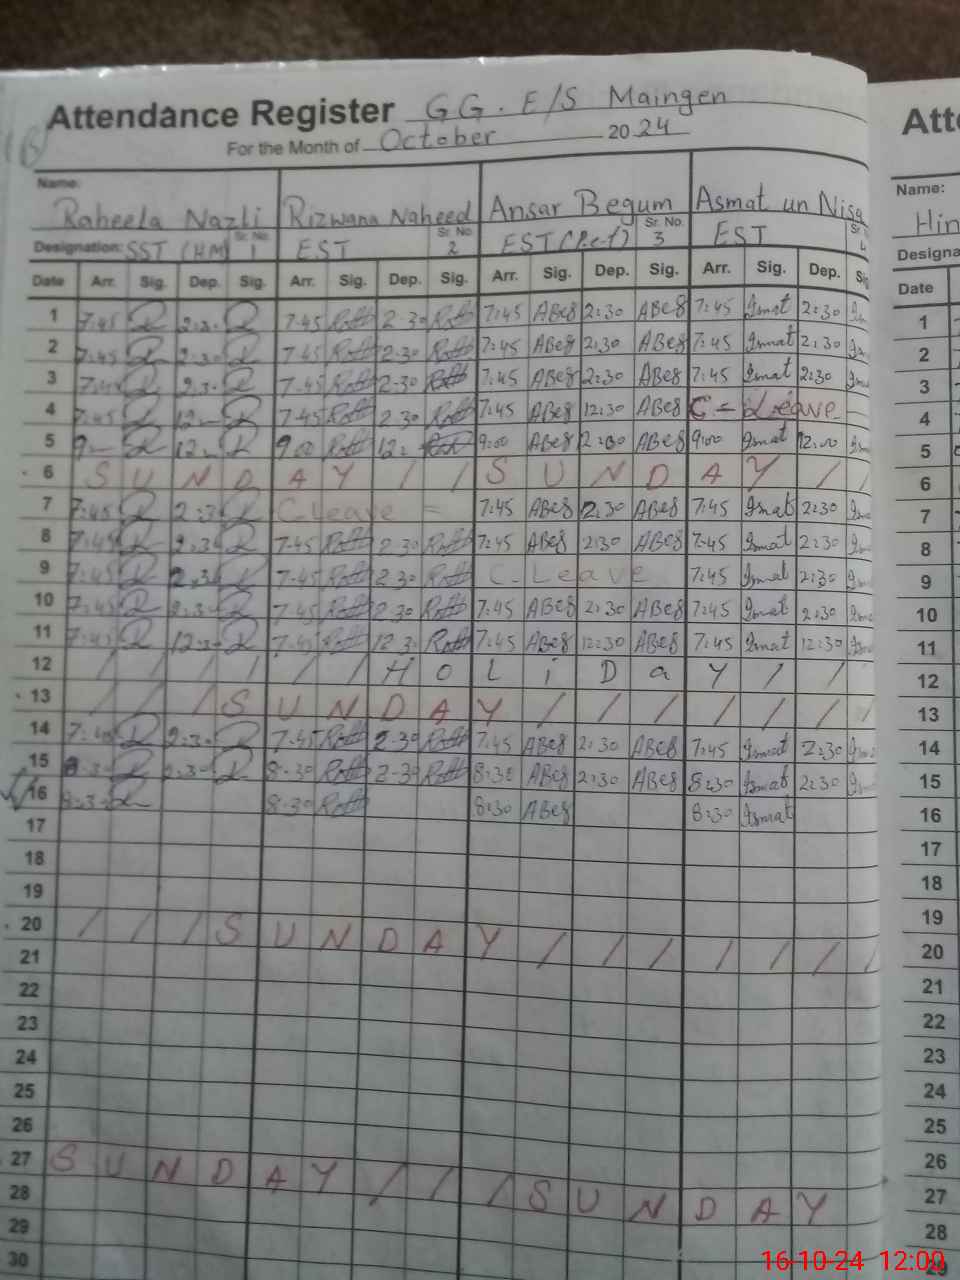 Attendance Register G G. E/S Maingen Atte
For the Month of October 2024
Name: Name:
Raheela Nazli Rizwana Naheed Ansar Begum Asmat un Nisa Hin
Designation: SST (HM) Sr. No. EST Sr. No. 2 EST Sr. No. 3 EST Designa
Date Arr. Sig. Dep. Sig. Arr. Sig. Dep. Sig. Arr. Sig. Dep. Sig. Arr. Sig. Dep. Date
1 7:45 7-45 2-30 7:45 ABeg 2:30 ABeg 7:45 Ismat 2:30 1
2 7:45 2:30 7-45 2-30 7:45 ABeg 2:30 ABeg 7:45 Ismat 2:30 2
3 7-45 2-30 7:45 ABeg 2:30 ABeg 7:45 Ismat 2:30 3
4 7:45 12 7-45 2.30 7:45 ABeg 12:30 ABeg C - Leave 4
5 9 12 9.00 12 9:00 ABeg ABeg 9:00 Ismat 12:00 5
6 S U N D A Y / / S U N D A Y / 6
7 7:45 C leave = 7:45 ABeg 2:30 ABeg 7:45 Ismat 2:30 7
8 7:45 7-45 2-30 7:45 ABeg 2:30 ABeg 7:45 Ismat 2:30 8
9 7:45 7-45 2-30 C. Leave 7:45 Ismat 2:30 9
10 7:45 7-45 2-30 7:45 ABeg 2:30 ABeg 7:45 Ismat 2:30 10
11 7-45 12.3 7:45 ABeg 12:30 ABeg 7:45 Ismat 12:30 11
12 / / / / / / H O L i D a Y / / 12
13 / / / S U N D A Y / / / / / / 13
14 7:45 2:30 7-45 2-30 7:45 ABeg 2:30 ABeg 7:45 Ismat 2:30 14
15 8:30 2:30 8-30 2-30 8:30 ABeg 2:30 ABeg 8:30 Ismat 2:30 15
16 8:30 8-30 8:30 ABeg 8:30 Ismat 16
17 17
18 18
19 19
20 / / / S U N D A Y / / / / / / / 20
21 21
22 22
23 23
24 24
25 25
26 26
27 S U N D A Y / / / S U N D A Y 27
28 28
29 29
30
16-10-24 12:00